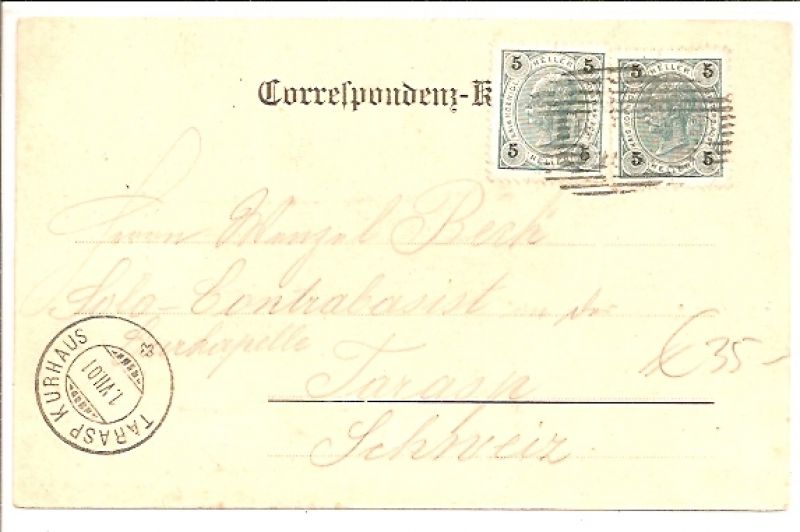 5 HELLER 5
5 HELLER 5
5 HELLER 5
5 HELLER 5
Correspondenz-K
Herrn Wenzel Beck
Solo-Contrabasist an der
Kurkapelle
Tarasp
Schweiz
€ 35-
TARASP KURHAUS
1.VII.01